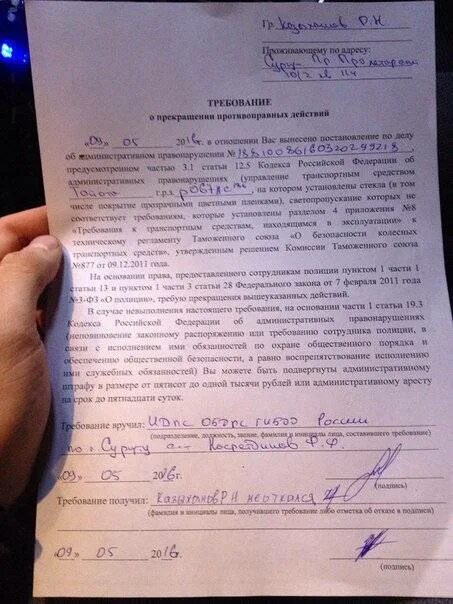 Гр. Казыханов Р.Н
Проживающему по адресу:
Сургут Пр Пролетарский
10/2 кв 114
ТРЕБОВАНИЕ
о прекращении противоправных действий
«09» 05 2016г. в отношении Вас вынесено постановление по делу
об административном правонарушении №
предусмотренном частью 3.1 статьи 12.5 Кодекса Российской Федерации об
административных правонарушениях (управление транспортным средством
Тойота, на котором установлены стекла (в том
числе покрытие прозрачными цветными пленками), светопропускание которых не
соответствует требованиям, которые установлены разделом 4 приложения №8
«Требования к транспортным средствам, находящимся в эксплуатации» к
техническому регламенту Таможенного союза «О безопасности колесных
транспортных средств», утвержденным решением Комиссии Таможенного союза
№877 от 09.12.2011 года.
На основании права, предоставленного сотрудникам полиции пунктом 1 части 1
статьи 13 и пунктом 1 части 3 статьи 28 Федерального закона от 7 февраля 2011 года
№3-ФЗ «О полиции», требую прекращения вышеуказанных действий.
В случае невыполнения настоящего требования, на основании части 1 статьи 19.3
Кодекса Российской Федерации об административных правонарушениях
(неповиновение законному распоряжению или требованию сотрудника полиции, в
связи с исполнением ими обязанностей по охране общественного порядка и
обеспечению общественной безопасности, а равно воспрепятствование исполнению
ими служебных обязанностей) Вы можете быть подвергнуты административному
штрафу в размере от пятисот до одной тысячи рублей или административному аресту
на срок до пятнадцати суток.
Требование вручил: ИДПС ОБДПС ГИБДД России
(подразделение, должность, звание, фамилия и инициалы лица, составившего требование)
по г. Сургут Насретдинов Ф.Ф.
«09» 05 2016г.
(подпись)
Требование получил: Казыханов Р Н
(фамилия и инициалы лица, получившего требование либо отметка об отказе в подписи)
«09» 05 2016г.
(подпись)